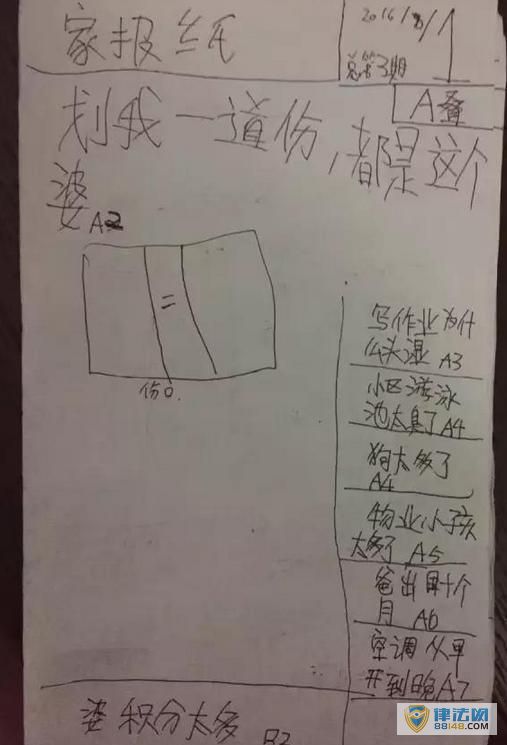 家报纸
2016/8/1
总第3期
A叠
划我一道份,都是这个
婆A2
份0.
写作业为什
么头湿 A3
小区游泳
池太臭了A4
狗太多了
A4
物业小孩
太多了 A5
爸出国十个
月 A6
空调从早
开到晚A7
婆积分太多
B2
律法网
88148.com